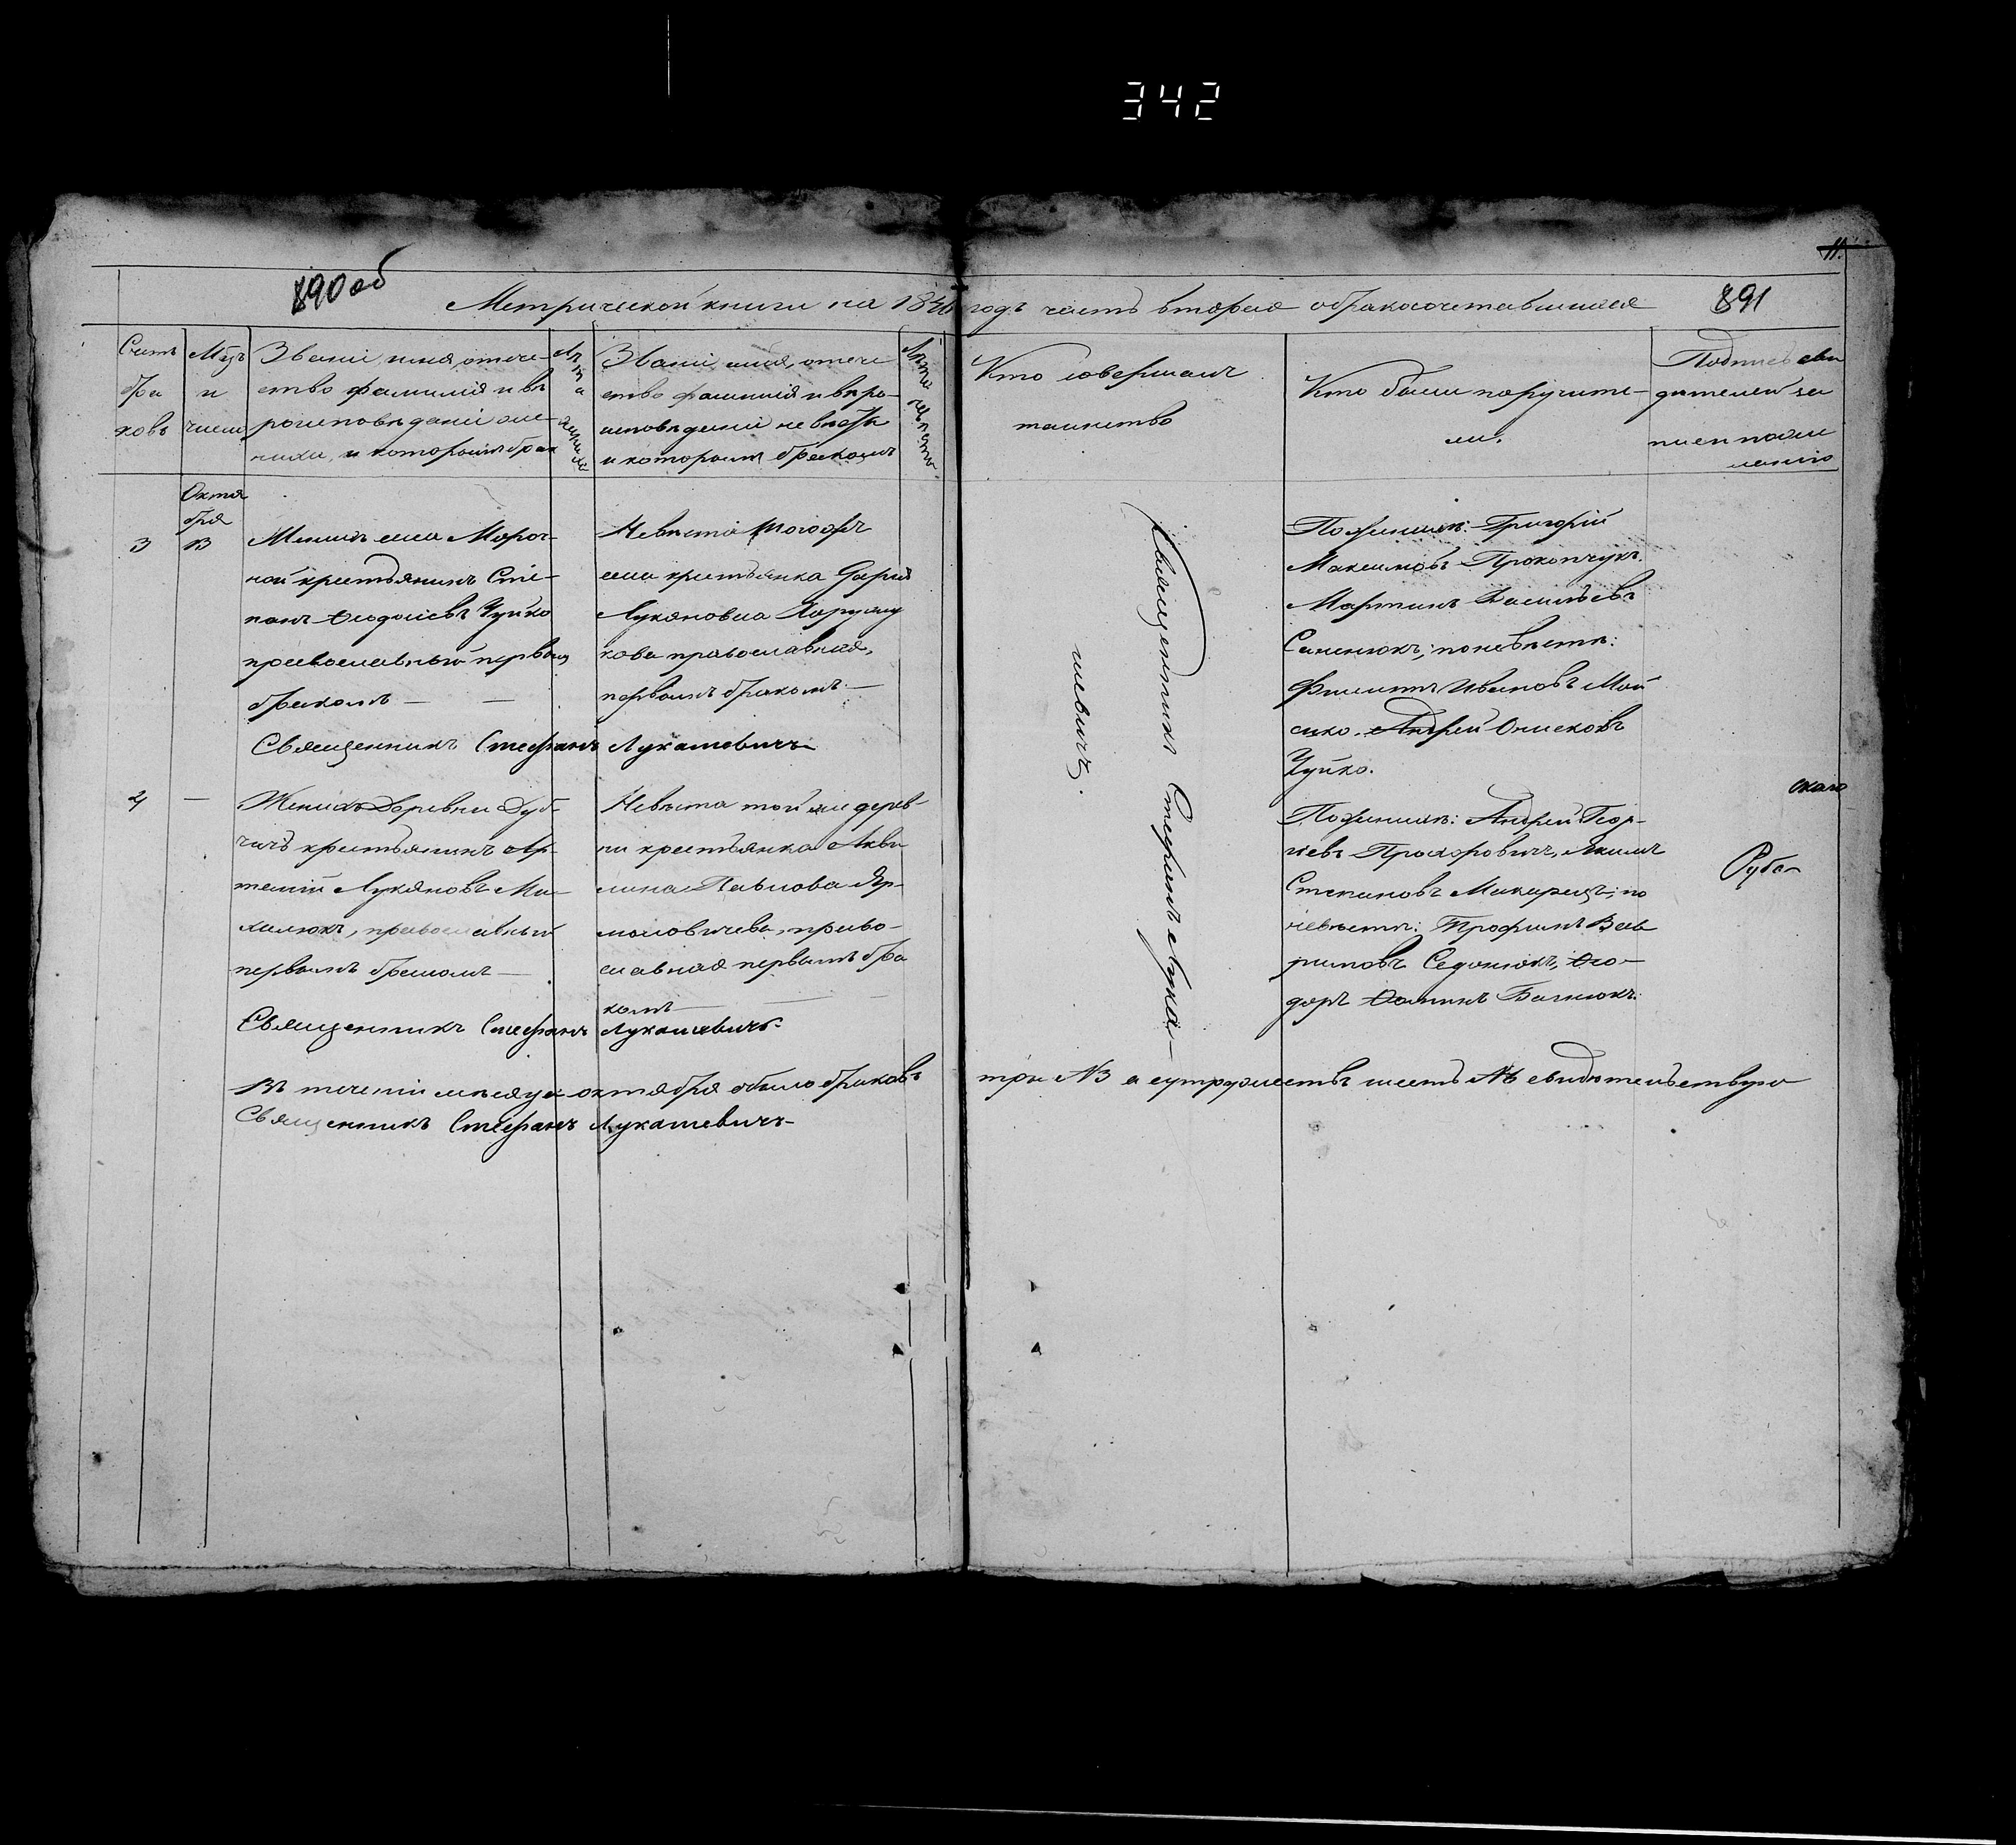 342
11.
890 об
Метрической книги на 18 годъ часть вторая о бракосочетавшихся
891
Счетъ
бра
ковъ
Мѣсъ
и
число
Званіе, имя, отече-
ство фамилія и вѣ
роисповѣданіе же-
ниха, и которымъ брак
Лѣта
жениха
Званіе, имя, отече
ство фамилія и вѣро-
исповѣданіе невѣсты
и которымъ бракомъ
Лѣта
невѣсты
Кто совершалъ
таинство
Кто были поручите-
ли.
Подпись сви
дѣтелей за
писи по же
ланію
3
Октя
бря
13
Женихъ села Мороч-
ной крестьянинъ Сте-
панъ Ѳеодосіевъ Чуйко
православный первым
бракомъ —
Священникъ Стефанъ Лукашевичъ
Невѣста того жъ
села крестьянка Дарія
Лукяновна
кова православная,
первымъ бракомъ —
Священникъ Стефанъ Лука-
шевичъ.
По женихѣ: Григорій
Максимовъ Прокопчукъ.
Мартинъ Васильевъ
Саненюкъ; по невѣстѣ:
Филиппъ Ивановъ Мой
сико. Андрей Онисковъ
Чуйко.
4
—
Женихъ Деревни Дуб-
чичъ крестьянинъ Ар-
темій Лукяновъ Ми-
халюкъ, православный
первымъ бракомъ —
Священникъ Стефанъ Лукашевичъ
Невѣста той же дерев-
ни крестьянка Акви
лина Павлова Яр-
моловичева, право-
славная первымъ бра
комъ —
По женихѣ: Андрей Геор-
гіевъ Прохоровичъ, Якимъ
Степановъ Макарецъ; по
невѣстѣ: Трофимъ Вав
риновъ Седонюкъ, Ѳео-
доръ Ѳоминъ Багнюкъ.
Руба-
Въ теченіи мѣсяца октября было браковъ три №3 а супружествъ шесть №6 свидѣтельствую
Священникъ Стефанъ Лукашевичъ